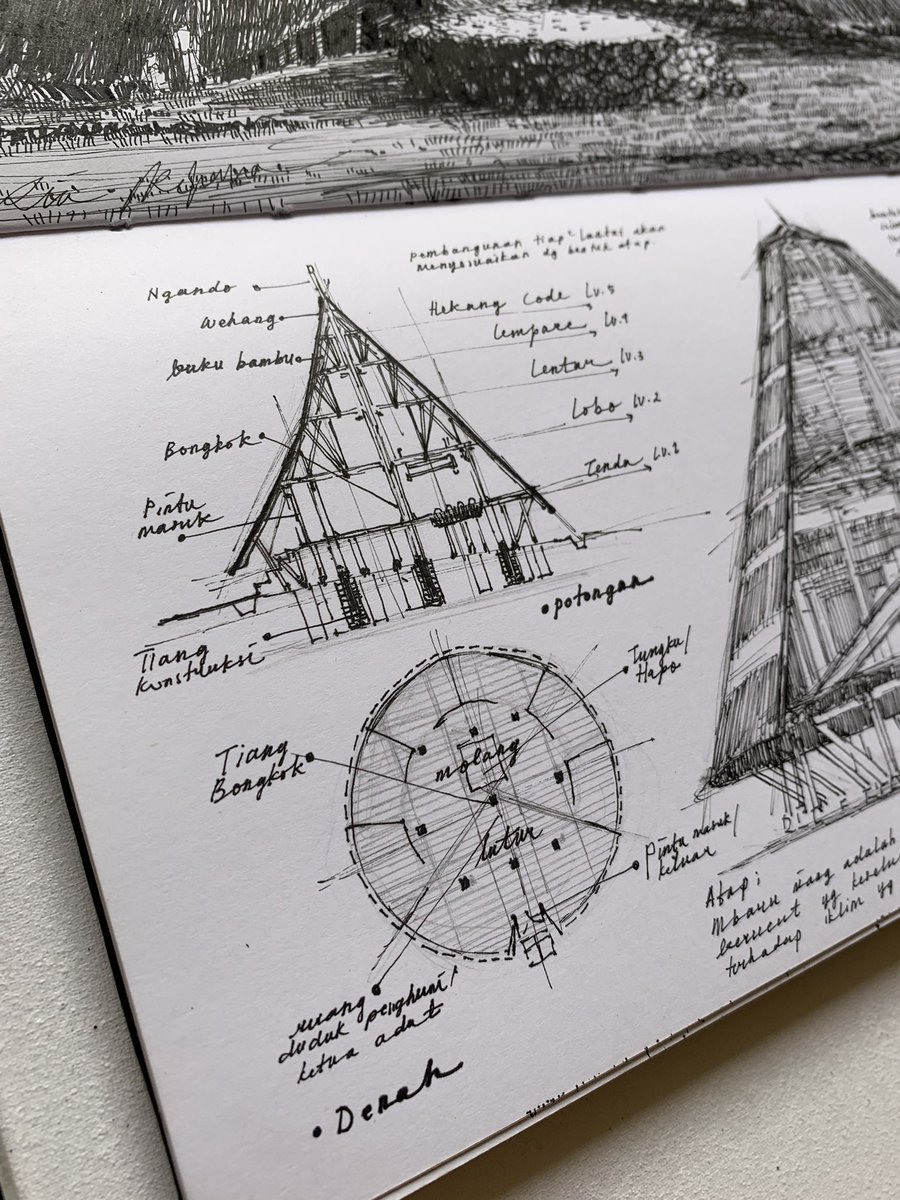 pembangunan tiap² lantai akan
menyesuaikan dg bentuk atap.
Ngando
Wehang
buku bambu
Bongkok
Pintu
masuk
Tiang
konstruksi
Hekang Code Lv.5
Lempare Lv.4
Lentur Lv.3
Lobo Lv.2
Tenda Lv.1
potongan
Tungku/
Hapo
Tiang
Bongkok
molang
lutur
Pintu masuk/
keluar
ruang
duduk penghuni/
ketua adat
Denah
Atap:
Mbaru niang adalah
kerucut yg
terhadap iklim yg